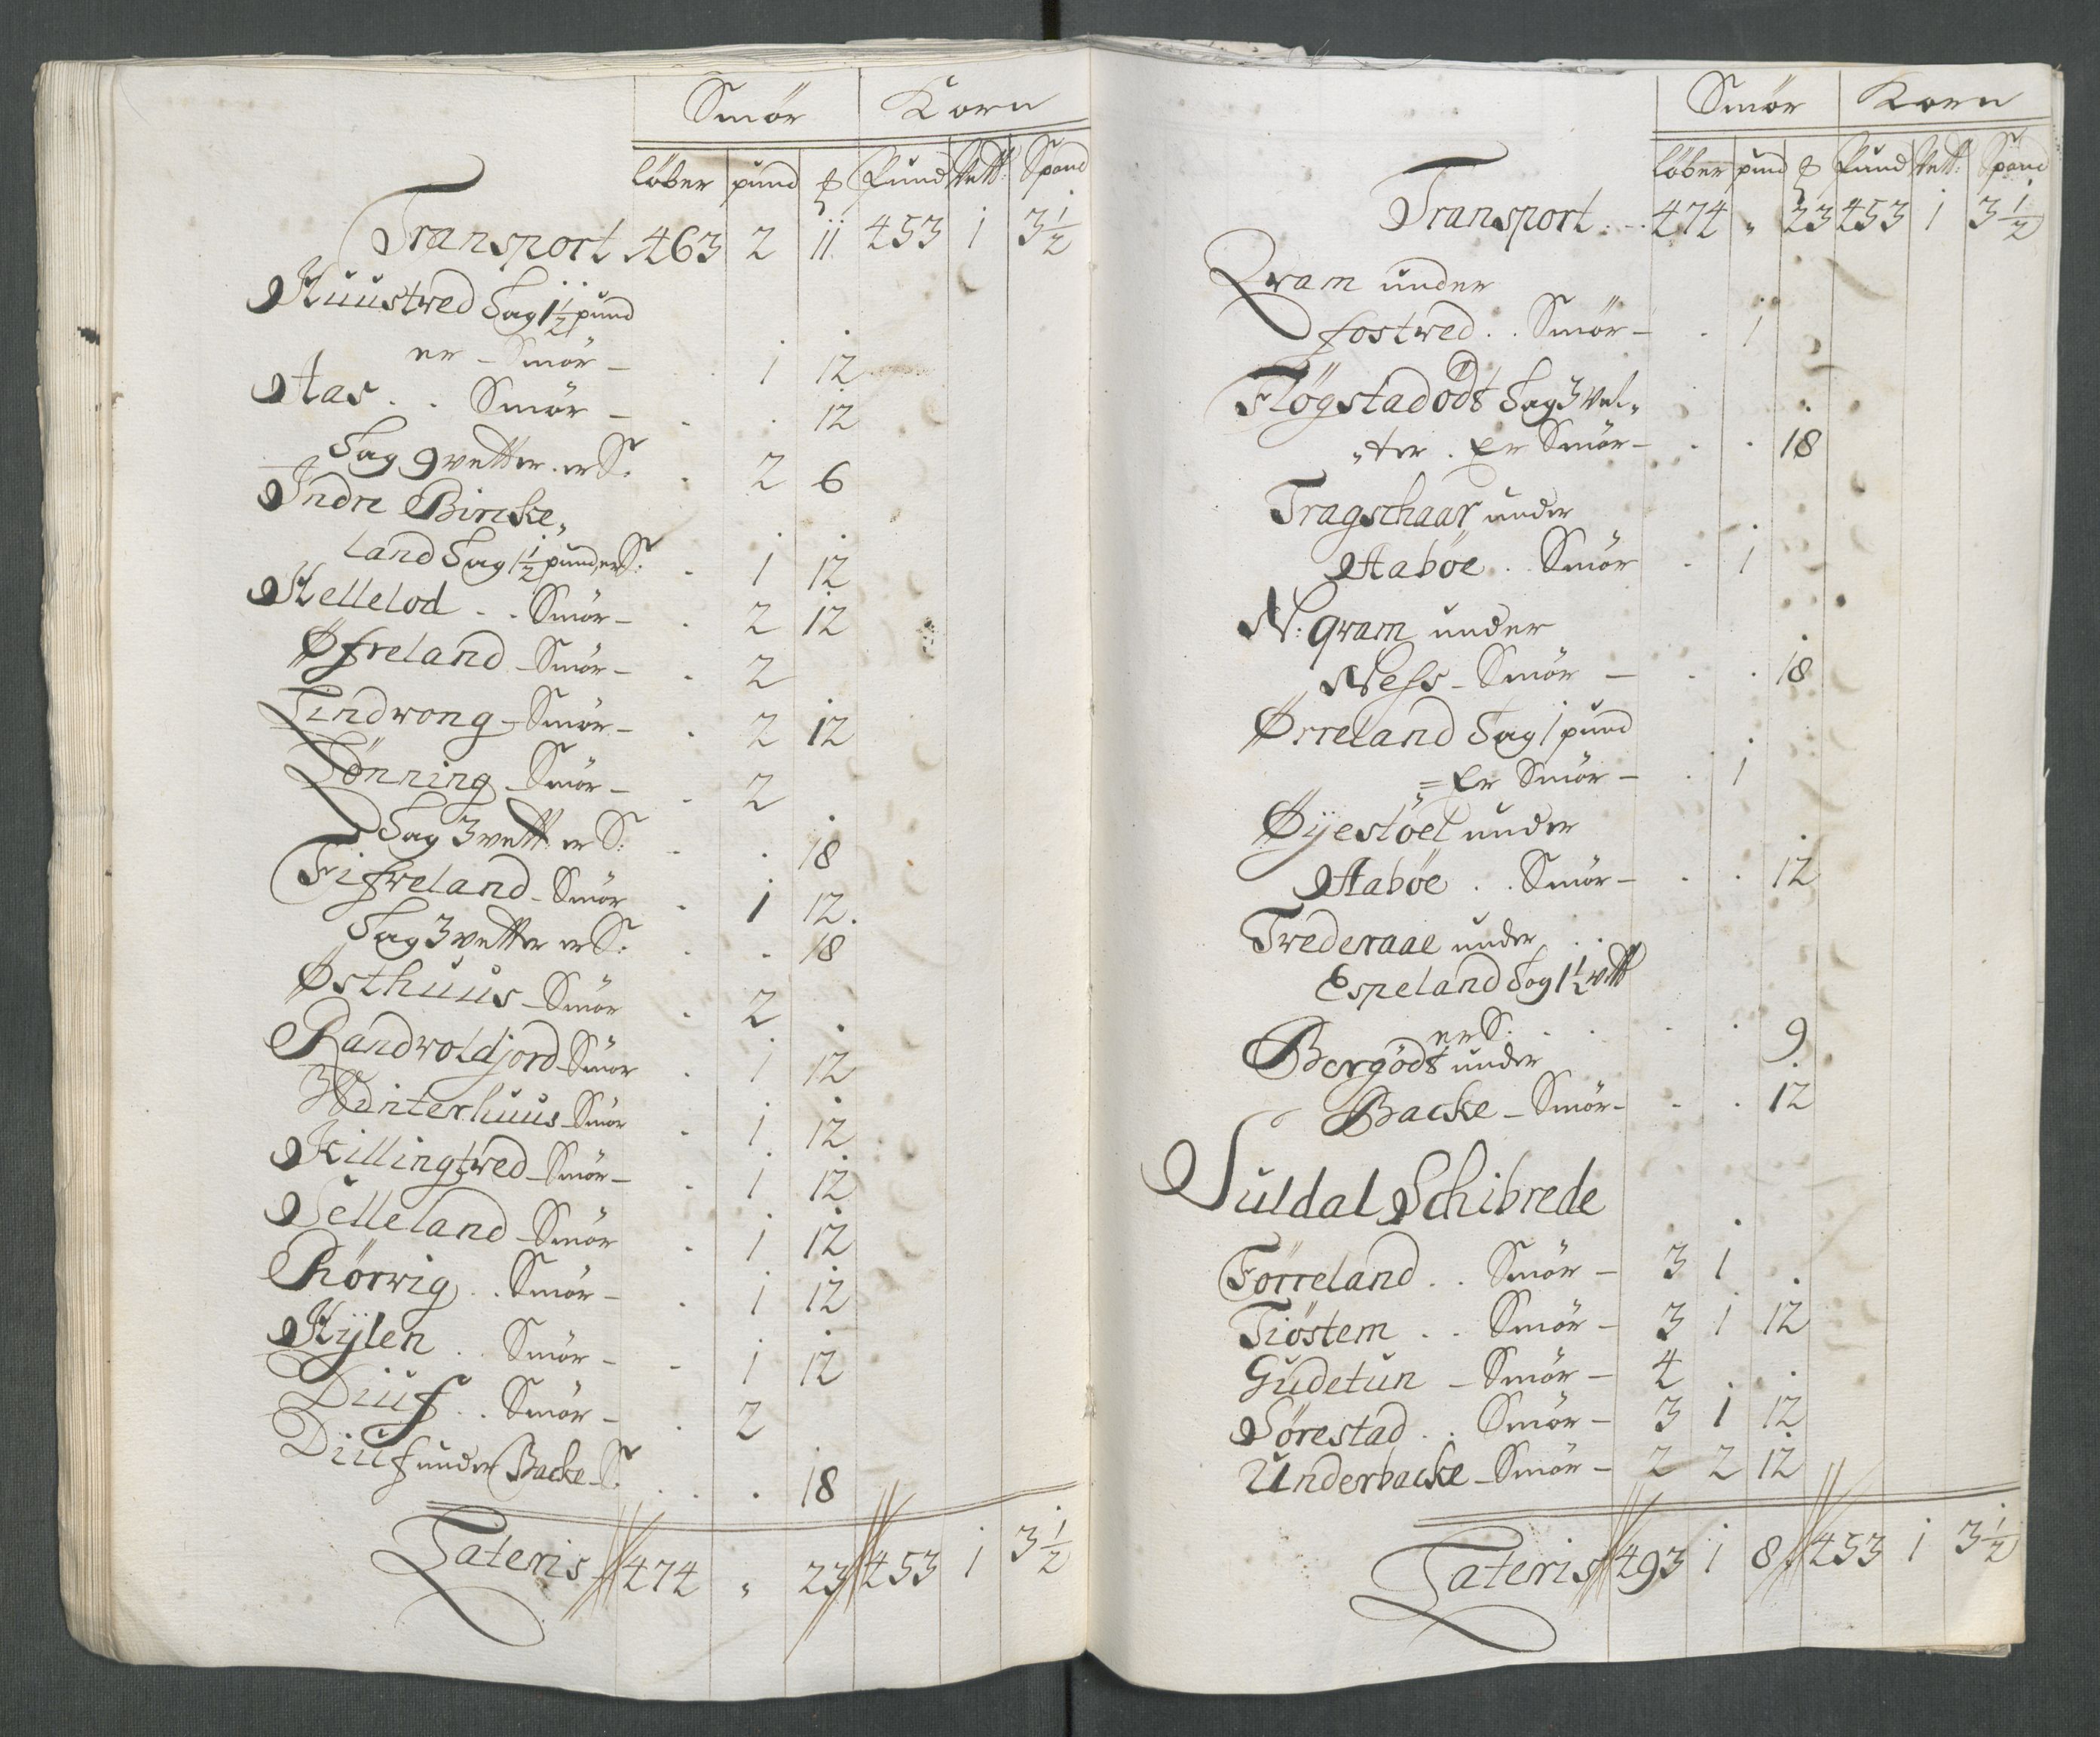 Smör Korn
löber pund ℔ Pund Vett: Spand
Transport 463 2 11 453 1 3 1/2
Huustved Sag 1 1/2 pund
er - Smör - . 1 12
Aas . . Smör - . . 12
Sag 9 vetter er S: . 2 6
Indre Bircke„
land Sag 1 1/2 pund er S: . 1 12
Hellelod . . Smör - . 2 12
Øfreland - Smör - . 2
Lindvong - Smör - . 2 12
Lönning - Smör - . 2
Sag 3 vett: er S: . . 18
Fifveland - Smör . 1 12.
Sag 3 vetter er S: . . 18
Østhuus - Smör . 2
Randvoldjord - Smör . 1 12
Winterhuus - Smör . 1 12
Killingtved - Smör - . 1 12
Selleland - Smör . 1 12
Rörvig . . Smör - . 1 12
Hÿlen . . Smör - . 1 12
Diuf . . Smör - . 2
Diuf under Backe - S: . . 18
Lateris 474 „ 23 453 1 3 1/2
Smör Korn
löber pund ℔ Pund Vett: Spand
Transport . . 474 „ 23 453 1 3 1/2
Qvam under
fostved . . Smör - . 1
Flögstadödt Sag 3 vel„
„ter . Er Smör - . . 18
Tragschaar under
Aaböe . . Smör . 1
N: qvam under
Ness - Smör - . . 18
Ørreland Sag 1 pund
„= Er Smör - . 1
Øÿestöel under
Aaböe . . Smör - . . 12
Trederaae under . .
Espeland Sag 1 1/2 vett
er S: . . . . 9
Bergödt under
Backe - Smör - . . 12
Suldal Schibrede
Förreland . . Smör - 3 1
Tiöstem . . Smör - 3 1 12
Gudetun - Smör - 4 . .
Sörestad . . Smör - 3 1 12
Underbacke - Smör - 2 2 12
Lateris 493 1 8 453 1 3 1/2